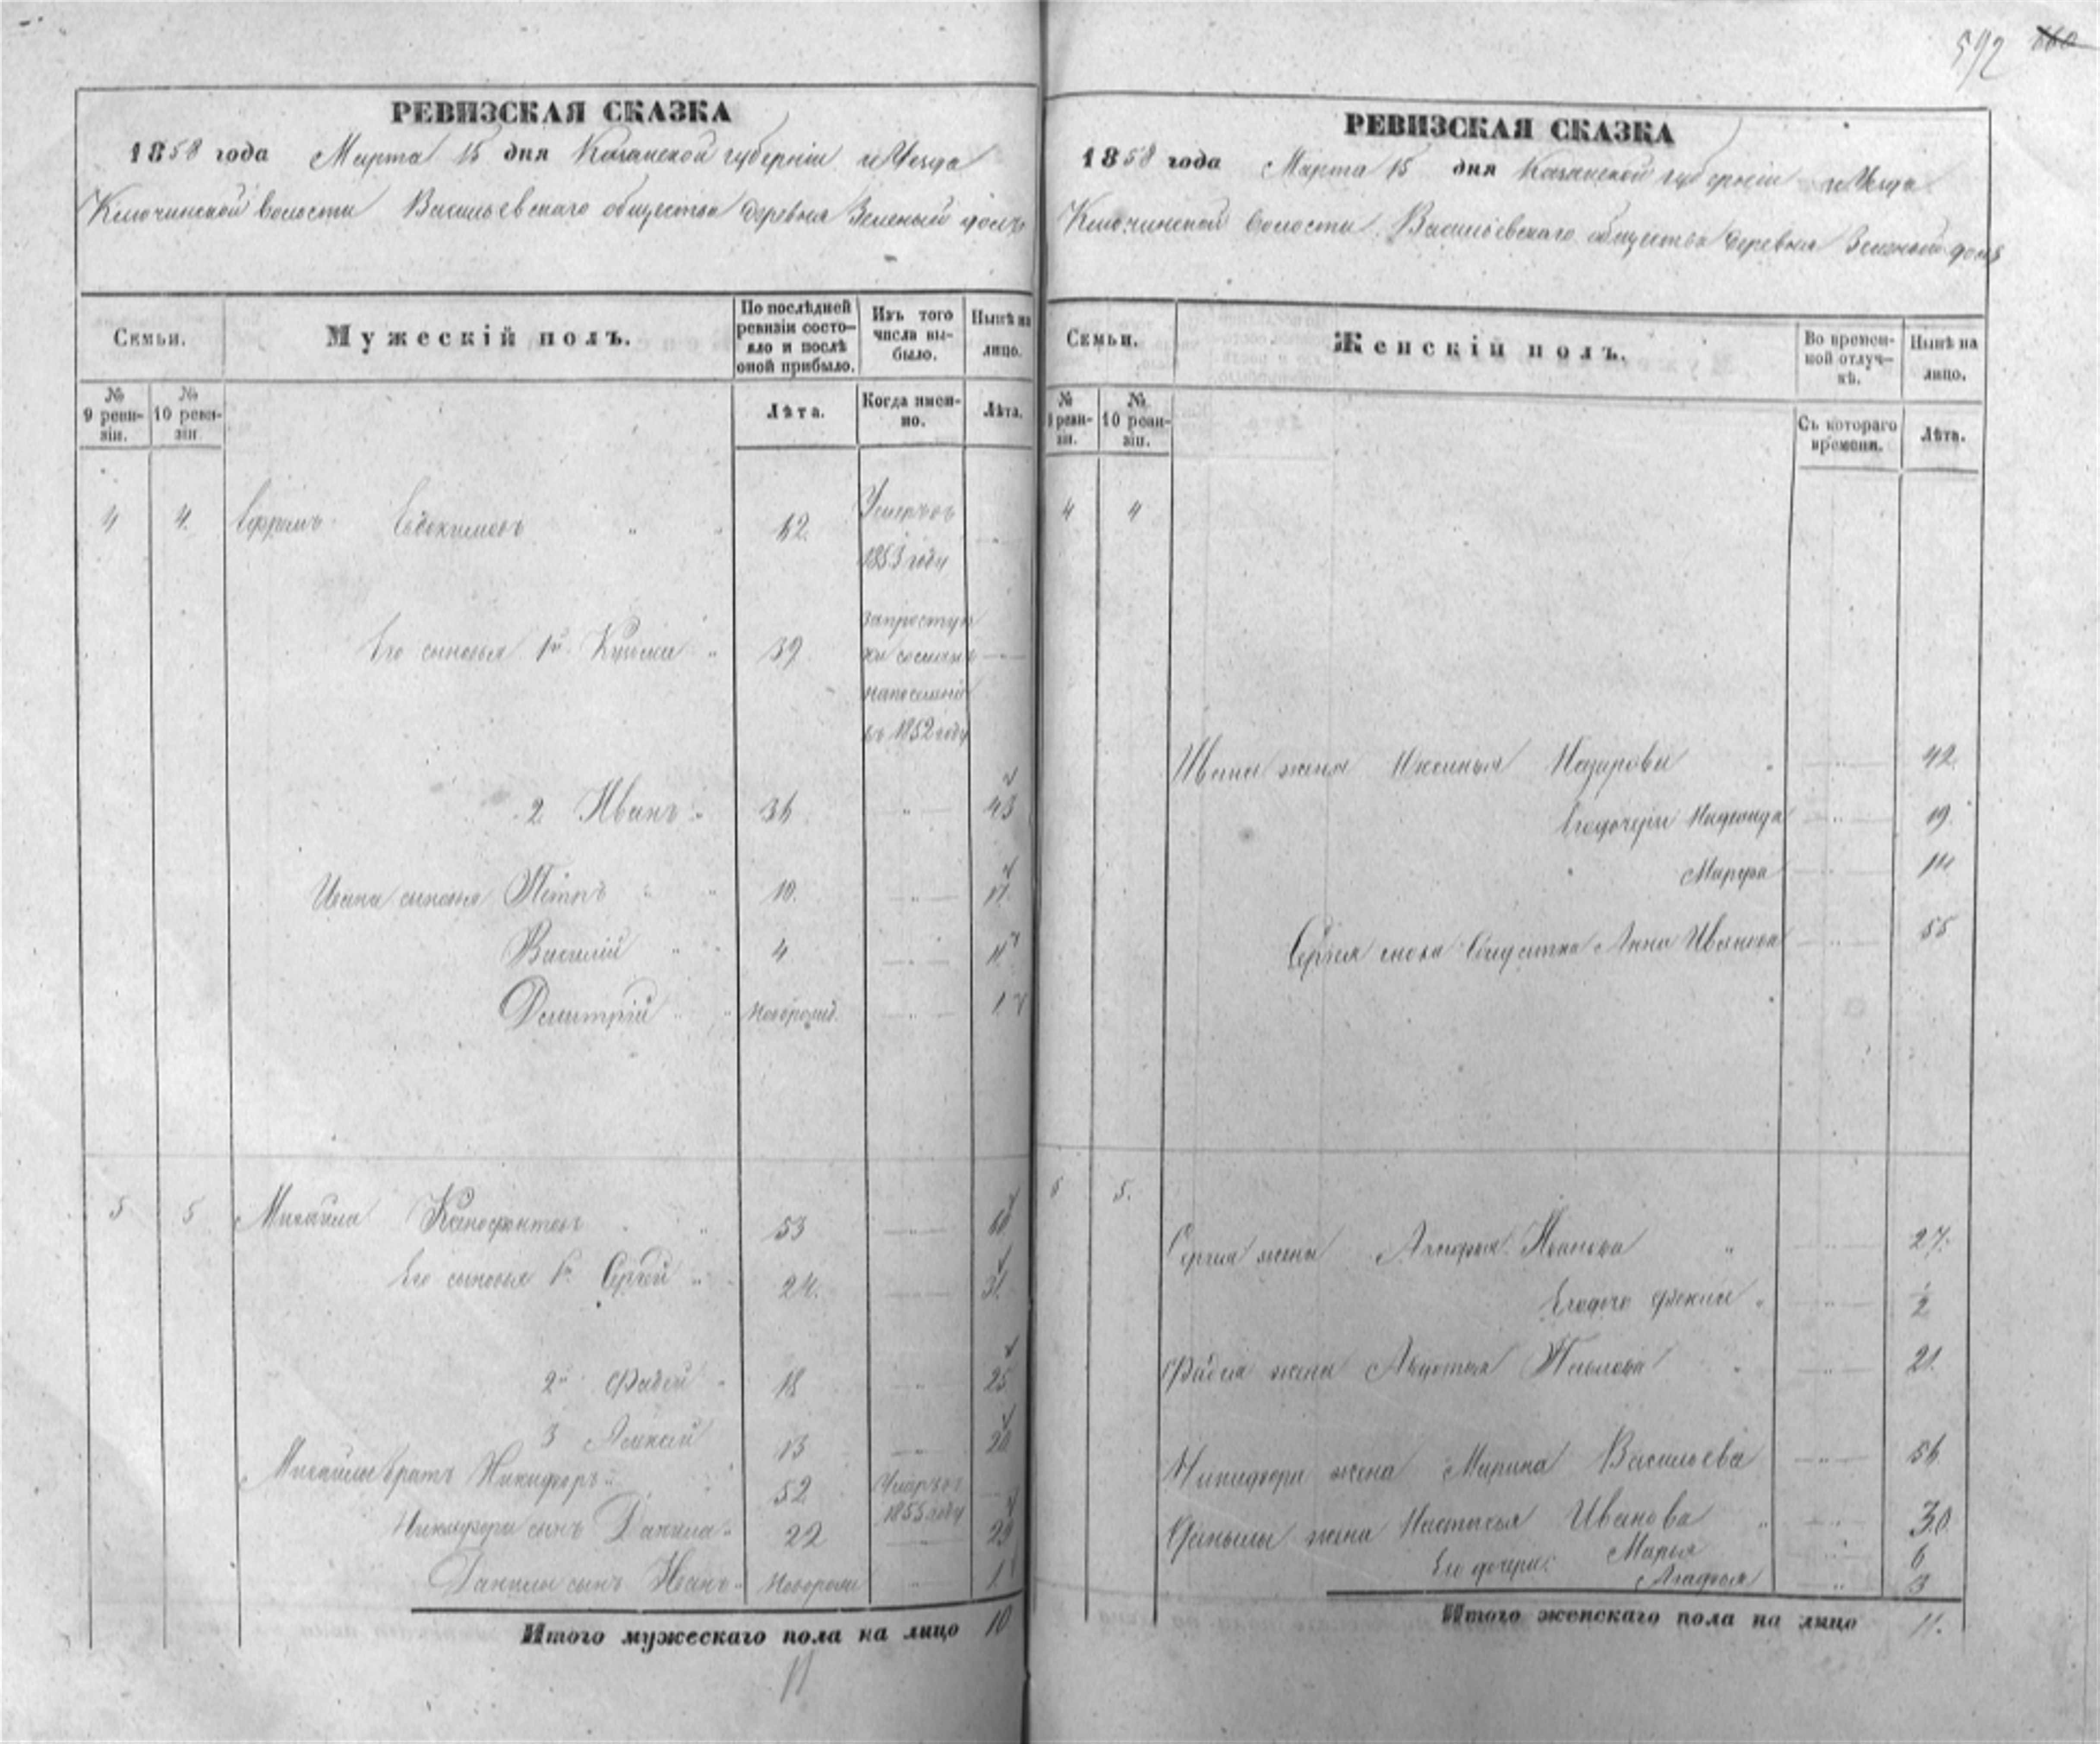 592 660
РЕВИЗСКАЯ СКАЗКА
1858 года Марта 15 дня Казанской губерніи и Уезда
Ключинской волости Васильевскаго общества деревня Зеленый долъ
Семьи.
Мужескій полъ.
По послѣдней ревизіи состо-
яло и послѣ
оной прибыло.
Изъ того
числа вы-
было.
Нынѣ на
лицо.
№
9 реви-
зіи.
№
10 реви-
зіи.
Лѣта.
Когда имен-
но.
Лѣта.
4 4. Ефремъ Евдокимовъ 62. Умеръ въ
1853 году
Его сыновья 1й Кузьма 39 за проступ
ки сосланъ
на поселеніе
въ 1852 году
2 Иванъ 36 43
Ивана сыновья Петръ 10. 17.
Василій 4 11
Дмитрій новорожд. 1
5 5 Михайла Ксенофонтовъ 53 60
Его сыновья 1й Сергей 24. 31.
2й Фадей 18 25
3 Алексей 13 20
Михайлы братъ Никифоръ 52 Умеръ въ
1855 году
Никифора сынъ Данила 22 29
Данилы сынъ Иванъ новорожд 1
Итого мужескаго пола на лицо 10
11
РЕВИЗСКАЯ СКАЗКА
1858 года Марта 15 дня Казанской губерніи и Уезда
Ключинской волости Васильевскаго общества деревня Зеленый долъ
Семьи.
Женскій полъ.
Во времен-
ной отлуч-
кѣ.
Нынѣ на
лицо.
№
9 реви-
зіи.
№
10 реви-
зіи.
Съ котораго
времени.
Лѣта.
4 4
Ивана жена Аксинья Назарова 42.
Его дочери 19.
Марфа 14
Сергея Анна Иванова 55
5 5.
Сергея жена Агафья Иванова 27.
Его дочь Фекла ½
Фадея жена Авдотья Павлова 21.
Никифора жена Марина Васильева 56
Данилы жена Настасья Иванова 30.
Его дочери: Марья 6
Агафья 3
Итого женскаго пола на лицо 11.